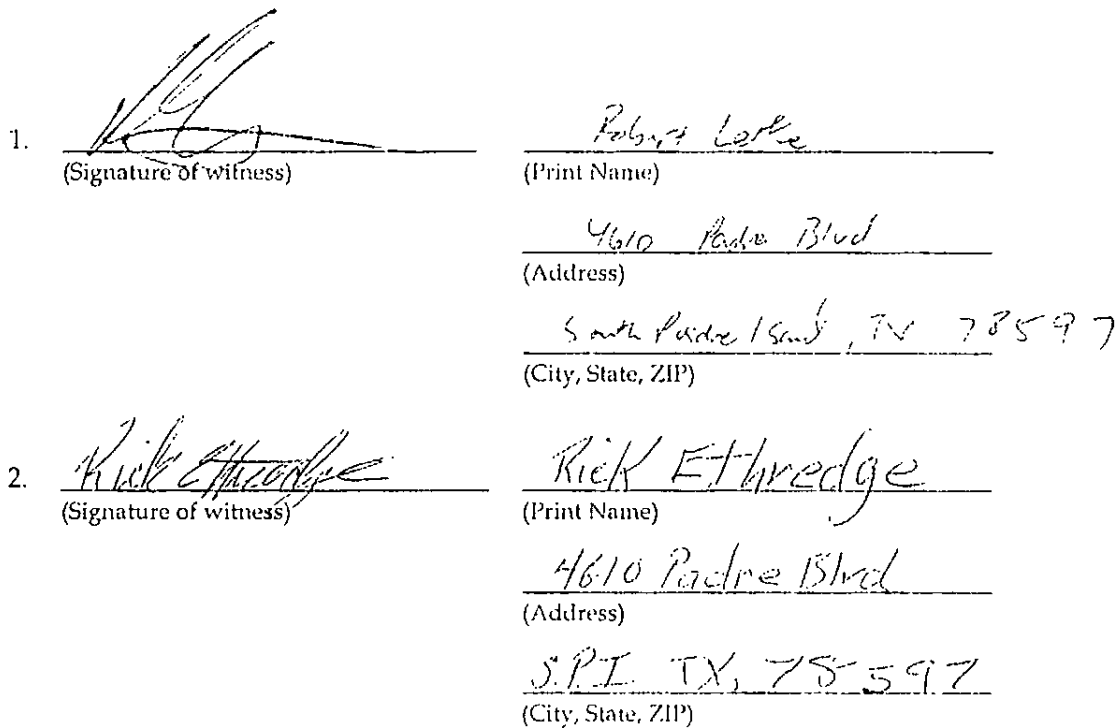 1.
(Signature of witness)
Robert
(Print Name)
4610 Padre Blvd
(Address)
South Padre Island, TX 78597
(City, State, ZIP)
2. Rick Ethredge
(Signature of witness)
Rick Ethredge
(Print Name)
4610 Padre Blvd
(Address)
S.P.I. TX, 78597
(City, State, ZIP)